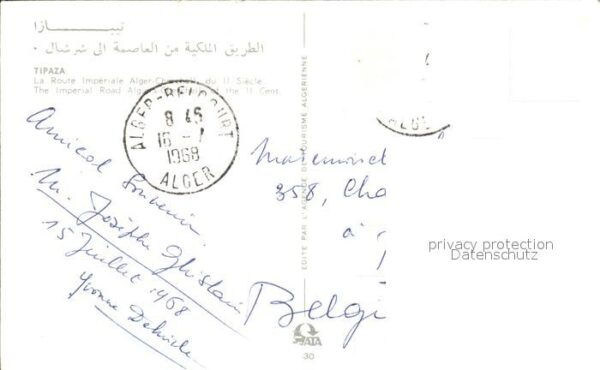 تيبــــازا
الطريق الملكية من العاصمة الى شرشال .
TIPAZA
La Route Impériale Alger-Cherchell du II Siècle.
The Imperial Road Alger of the II Cent.
ALGER-BELCOURT
8 45
16 - 7
1968
ALGER
Amical Souvenir.
M. Joseph Ghislain
15 Juillet 1968
Yvonne
EDITE PAR L'AGENCE DE TOURISME ALGERIENNE
358, Cha
à
Belgi
privacy protection
Datenschutz
30